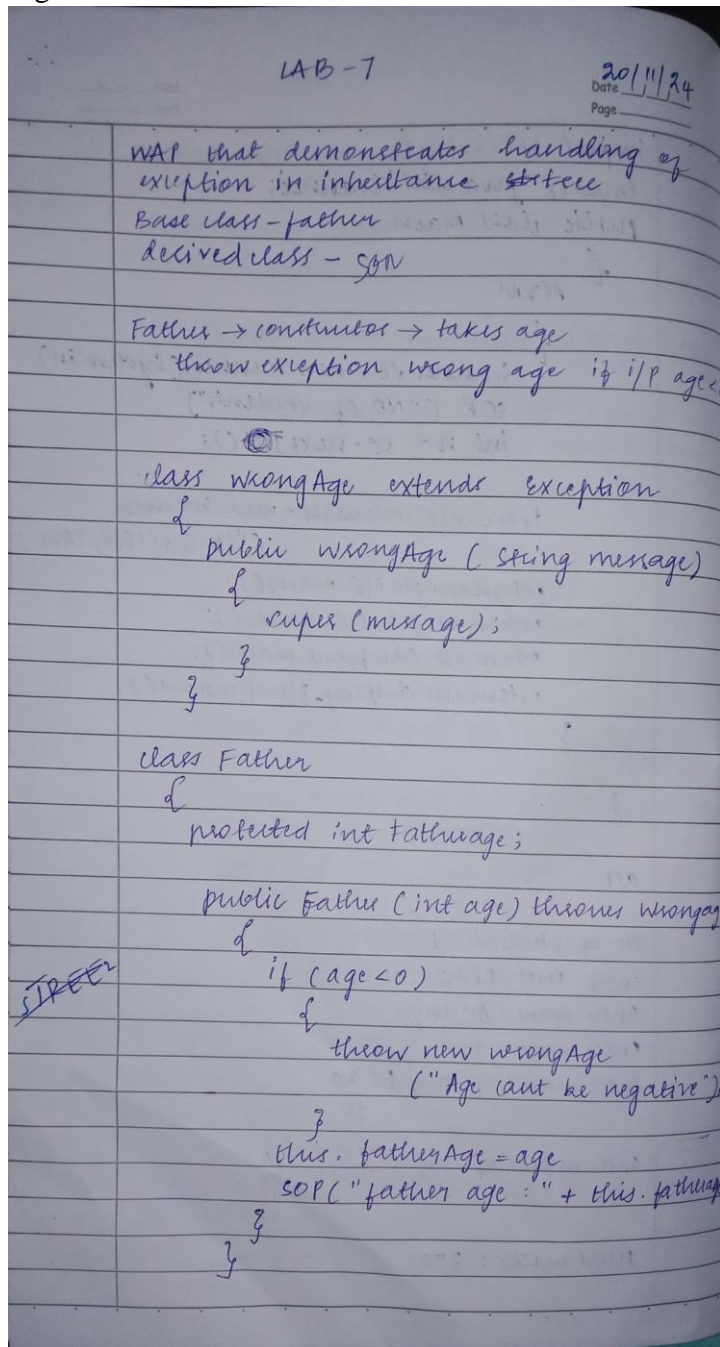 LAB-7
20/11/24
Date
Page
WAP that demonstrates handling of
exception in inheritance tree
Base class - father
derived class - SON
Father → constructor → takes age
throw exception wrong age if i/p age<
class wrongAge extends Exception
{
public wrongAge ( string message)
{
super (message);
}
}
class Father
{
protected int Fatherage;
public Father (int age) throws wrongag
{
if (age<0)
{
STREET
throw new wrongAge
("Age cant be negative")
}
this. fatherAge = age
SOP("father age :" + this. fatherag
}
}